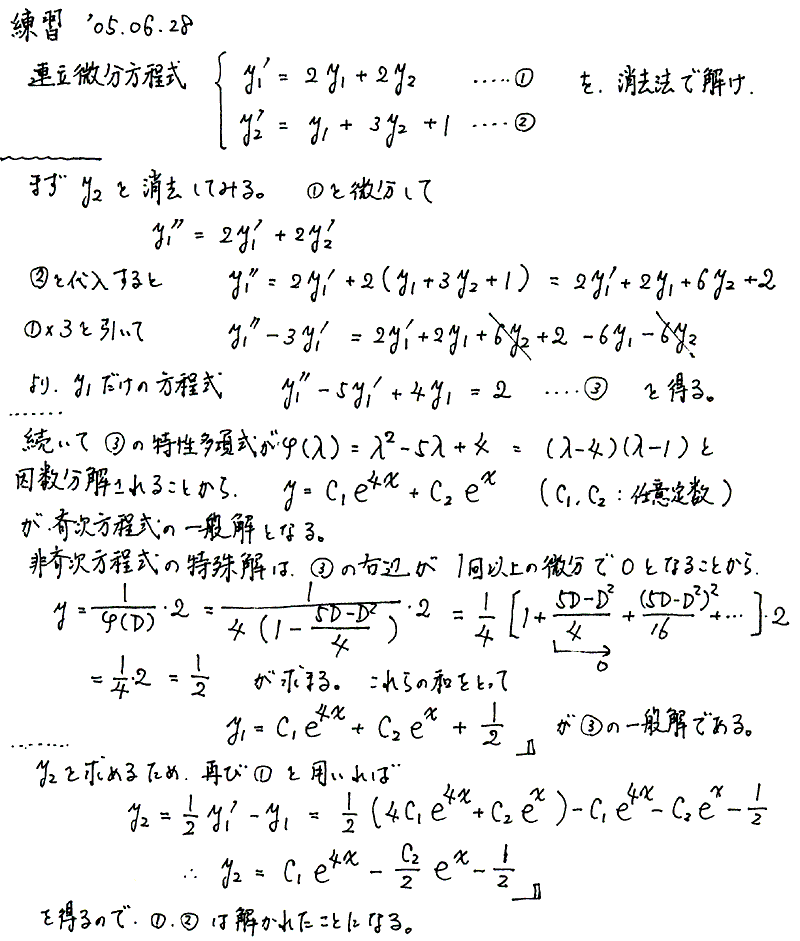 練習 '05.06.28
連立微分方程式 { y₁' = 2y₁ + 2y₂ ……① を、消去法で解け.
y₂' = y₁ + 3y₂ + 1 ……②
まず y₂ を消去してみる。 ①を微分して
y₁'' = 2y₁' + 2y₂'
②を代入すると y₁'' = 2y₁' + 2(y₁+3y₂+1) = 2y₁'+2y₁+6y₂+2
①×3を引いて y₁''-3y₁' = 2y₁'+2y₁+6y₂+2-6y₁-6y₂
より、y₁だけの方程式 y₁''-5y₁'+4y₁ = 2 ……③ を得る。
続いて ③の特性多項式が φ(λ) = λ²-5λ+4 = (λ-4)(λ-1) と
因数分解されることから、 y = C₁e^{4x} + C₂e^{x} (C₁, C₂ : 任意定数)
が、斉次方程式の一般解となる。
非斉次方程式の特殊解は、③の右辺が 1回以上の微分で0となることから、
y = 1/φ(D)・2 = 1/(4(1-(5D-D²)/4))・2 = 1/4[1+(5D-D²)/4+(5D-D²)²/16+…]・2
0
= 1/4・2 = 1/2 が求まる。 これらの和をとって
y₁ = C₁e^{4x} + C₂e^{x} + 1/2 が③の一般解である。
y₂を求めるため、再び①を用いれば
y₂ = 1/2 y₁' - y₁ = 1/2(4C₁e^{4x}+C₂e^{x})-C₁e^{4x}-C₂e^{x}-1/2
∴ y₂ = C₁e^{4x} - C₂/2 e^{x} - 1/2
を得るので、①、②は解かれたことになる。